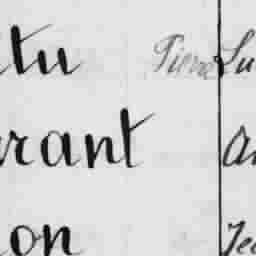 tu Pierre Lu
rant An
on Jea